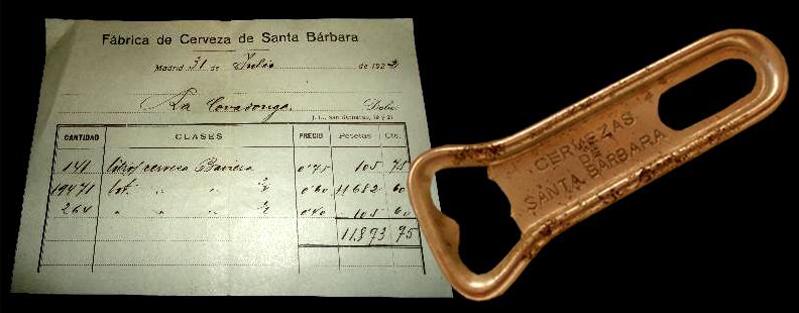 Fábrica de Cerveza de Santa Bárbara
Madrid 31 de Julio de 192
La Covadonga. Debe
CANTIDAD CLASES PRECIO Pesetas Cts.
141 litros cerveza Baviera 0'75 105 75
19471 bot. " " 0'60 11682 60
264 " " " 0'40 105 60
11.893 95
CERVEZAS
DE
SANTA BÁRBARA